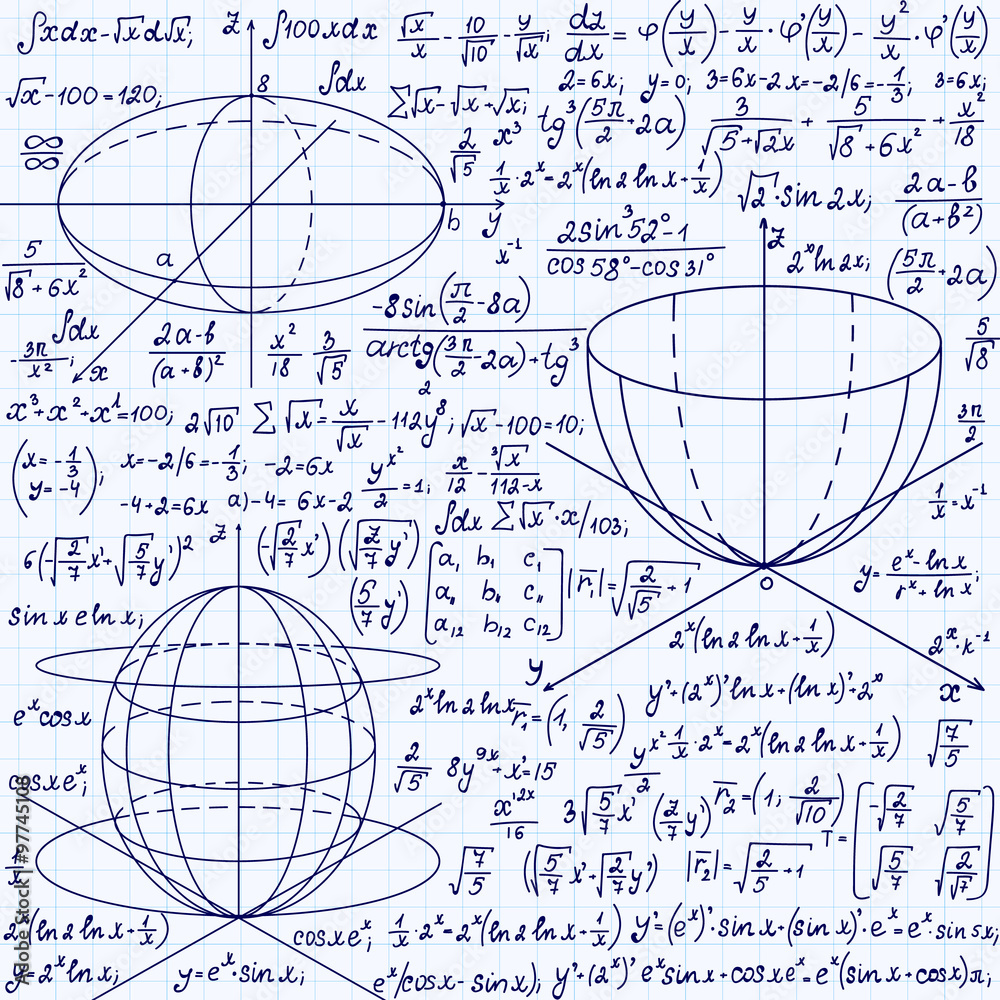 ∫xdx-√x d√x; z ∫100xdx √x/x - 10/√10 - y/√x; dz/dx = φ(y/x) - y/x · φ'(y/x) - y²/x · φ'(y/x)
√x-100=120; 8 ∫dx ∑√x-√x+√x; 2=6x; y=0; 3=6x-2 x=-2/6=-1/3; 3=6x;
∞/∞ 2/√5 x³ tg³(5π/2+2a) 3/(√5+√2x) + 5/(√8+6x²) + x²/18
1/x·2ˣ=2ˣ(ln2 lnx+1/x) √2·sin2x; (2a-b)/(a+b²)
b y x⁻¹ (2sin³52°-1)/(cos58°-cos31°) z 2ˣln2x; (5π/2+2a)
5/(√8+6x²) a
∫dx -8sin(π/2-8a)/(arctg(3π/2-2a)+tg³ 5/√8
-3π/x²; x (2a-b)/(a+b)² x²/18 3/√5 2
x³+x²+x¹=100; 2√10 ∑√x=x/√x-112y⁸; √x-100=10; 3π/2
(x=-1/3 y=-4); x=-2/6=-1/3; -2=6x yˣ²/2=1; x/12-³√x/(112-x)
-4+2=6x a)-4=6x-2 1/x=x⁻¹
z ∫dx ∑√x·x/103;
6(-√2/7x'+√5/7y')² (-√2/7x')(√z/7y')
(5/7y') [a₁ b₁ c₁ a₁₁ b₁₁ c₁₁ a₁₂ b₁₂ c₁₂] |r₁|=√2/√5+1 o y=(eˣ-lnx)/(rˣ+lnx);
sinx elnx; 2ˣ(ln2 lnx+1/x) 2ˣ·k⁻¹
y x
eˣcosx 2ˣln2lnx r₁=(1, 2/√5) y'+(2ˣ)'lnx+(lnx)'+2ˣ
yˣ²/2 1/x·2ˣ=2ˣ(ln2 lnx+1/x) √7/5
cosxeˣ; 2/√5 8y⁹ˣ+x'=15
x'²ˣ/16 3√5/7x' (z/7y') r₂=(1; 2/√10) T=[-√2/7 √5/7 √5/7 √2/√7]
√7/5 (√5/7x'+√2/7y') |r₂|=√2/5+1
2ˣ(ln2 lnx+1/x) cosxeˣ; 1/x·2ˣ=2ˣ(ln2 lnx+1/x) y'=(eˣ)'·sinx+(sinx)'·eˣ=eˣ·sin5x;
y=2ˣlnx; y=eˣ·sinx; eˣ/cosx-sinx); y'+(2ˣ)' eˣsinx+cosxeˣ=eˣ(sinx+cosx)π;
Adobe Stock | #97745106